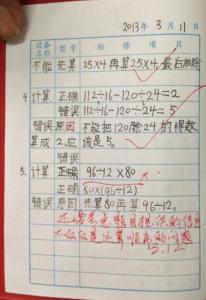 2013年 3月 11日
设备名称 型号 检修项目
不能先算 25×4再算25×4,最后相除
4. 计算 正确 112÷16-120÷24=2
错误 112÷16-120÷24=5
错误原因 不能把120除24的得数
算成2,应该是5。
错误
5. 计算 96-12×80
正确 80×(96-12)
错误原因 先算80再算96-12。
还要考虑题目提供的信息
不仅仅是运算顺序的问题
3.12